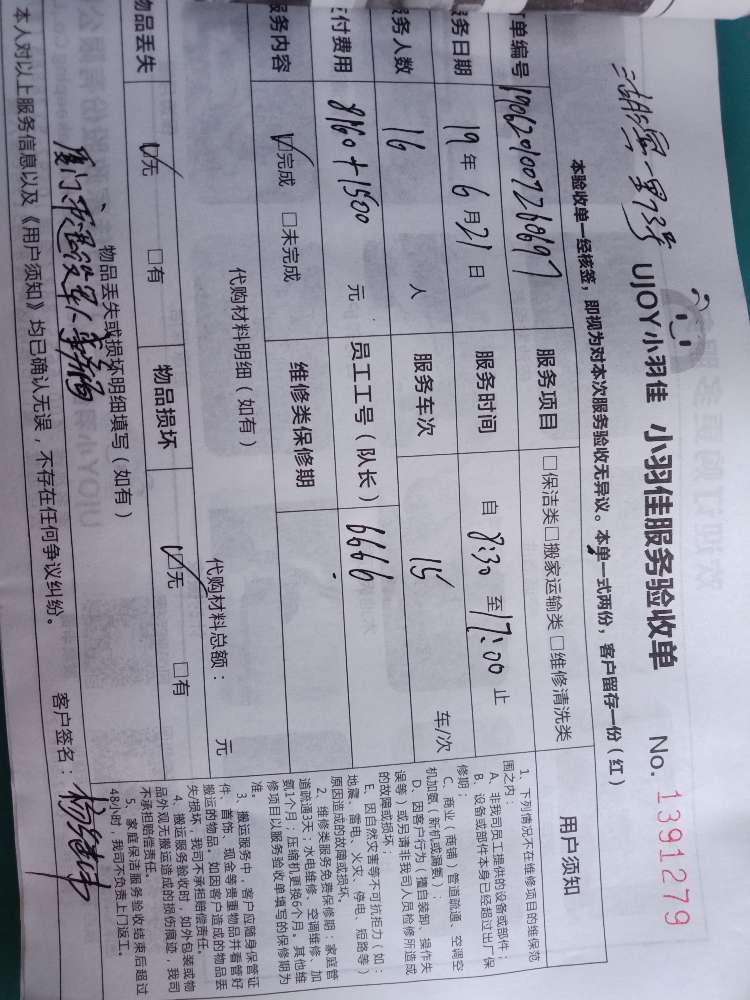 UJOY小羽佳 小羽佳服务验收单 No. 1391279
本验收单一经核签，即视为对本次服务验收无异议。本单一式两份，客户留存一份（红）
单编号 1906201007260697 服务项目 □保洁类□搬家运输类□维修清洗类
务日期 19年6月21日 服务时间 自 8:30 至 17:00 止
务人数 16 人 服务车次 15 车/次
付费用 8160+1500 元 员工工号（队长） 6666
服务内容 ☑完成 □未完成 维修类保修期
代购材料明细（如有） 代购材料总额： 元
物品丢失 ☑无 □有 物品损坏 ☑无 □有
物品丢失或损坏明细填写（如有）
本人对以上服务信息以及《用户须知》均已确认无误，不存在任何争议纠纷。
客户签名：
用户须知
1、下列情况不在维修项目的维保范
围之内：
A、非我司员工提供的设备或部件；
B、设备或部件本身已经超过出厂保
修期；
C、商业（商铺）管道疏通、空调空
机加氨（新机或漏氨）；
D、因客户行为（擅自装卸、操作失
误等）或另请非我司人员检修所造成
的故障或损坏；
E、因自然灾害等不可抗拒力（如：
地震、雷电、火灾、停电、短路等）
原因造成的故障或损坏。
2、维修类服务免费保修期：家庭管
道疏通3天；水电维修、空调维修、加
氨1个月；压缩机更换6个月。其他维
修项目以服务验收单填写的保修期为
准。
3、搬运服务中，客户应随身保管证
件、首饰、现金等贵重物品并看管好
搬运的物品，如因客户造成的物品丢
失损坏，我司不承担赔偿责任。
4、搬运服务验收时，如外包装或物
品外观无搬运造成的损伤痕迹，我司
不承担赔偿责任。
5、家庭保洁服务验收结束后超过
48小时，我司不负责上门返工。